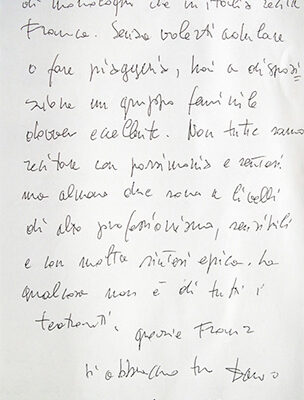 di monologhi che in Italia recita
Franca. Senza volerti adulare
o fare piaggeria, hai a disposi
zione un gruppo feminile
davver eccellente. Non tutte sanno
recitare con passionis e
ma almeno due sono a livelli
di alto professionismo, sensibili
e con molta sintesi epica. La
qual cosa non è di tutti i
teatranti. grazie Franz
ti abbraccio tuo Dario